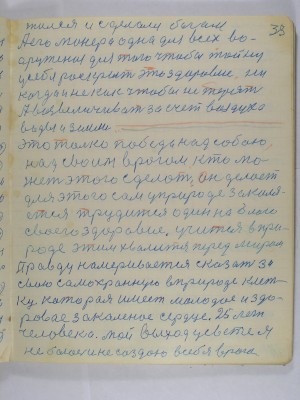 33
жался и сделался богатым
А его манера одна для всех во-
оружения для того чтобы той ку
у себя раскрыть это здоровие, ни
когда и не как чтобы не терять
А возвеличивать за счет воздуха
воды и земли.
это только победы над собою,
над своим врогом кто мо-
жет этого сделать, он делает
для этого сам у природе закаля-
ется трудится один на благо
своего здоровие, учится в при-
роде этим хвалится перед миром
Правду намеривается сказать за
свою самохранную в природе клет-
ку которая имеет молодое и здо-
ровое закаленое сердце. 25 лет
человека. мой выход из вести
не болеть и не создаю в себя врага